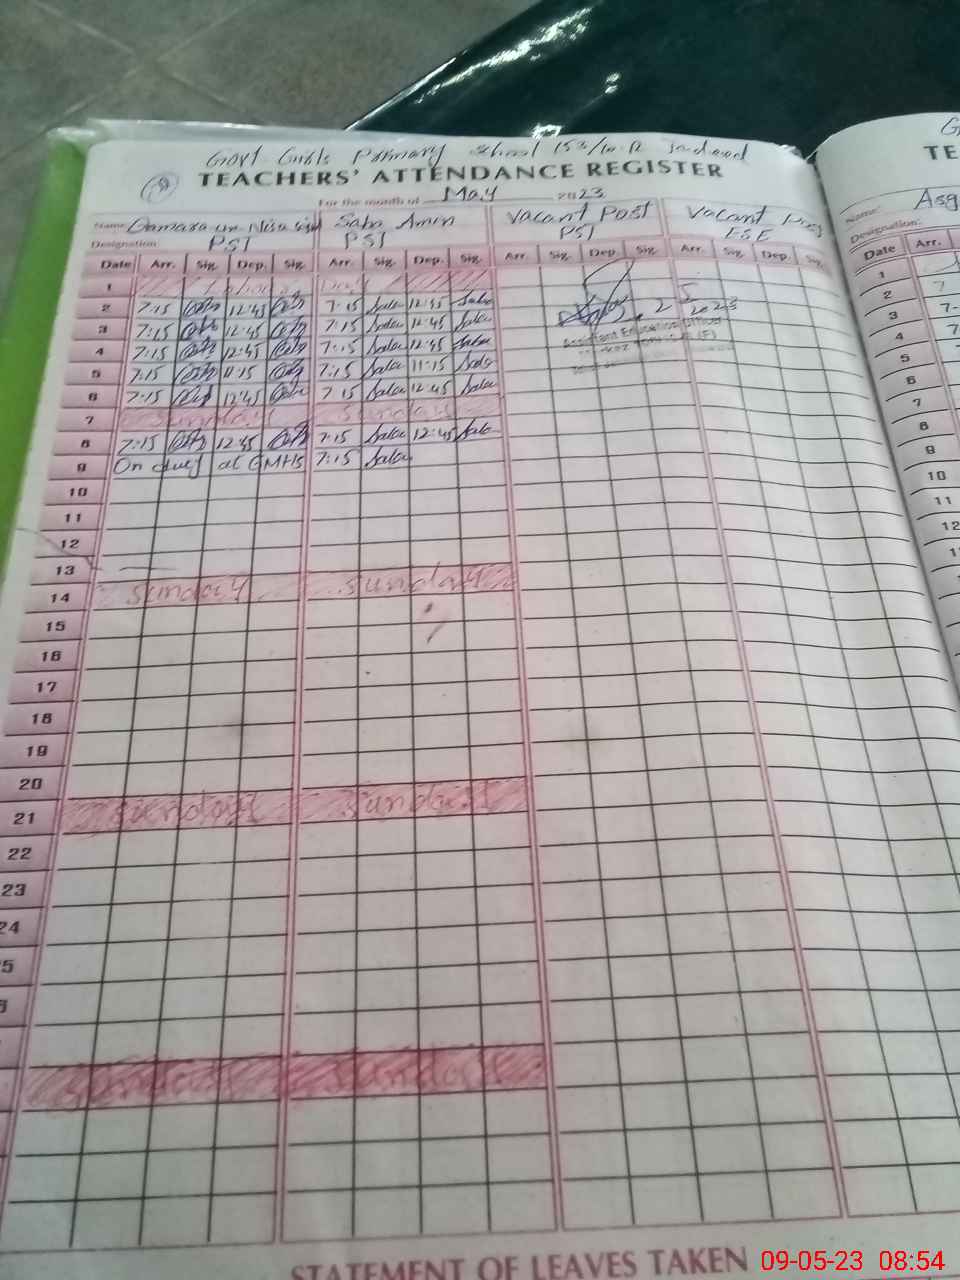 Govt Girls Primary School 153/10-R Jadeed
TEACHERS' ATTENDANCE REGISTER
For the month of May 2023
Name: un-Nisa Saba Amin Vacant Post Vacant Post
Designation PST PST PST ESE
Date Arr. Sig. Dep. Sig. Arr. Sig. Dep. Sig. Arr. Sig. Dep. Sig. Arr. Sig. Dep. Sig.
1 Labour Day
2 7:15 12:45 7:15 Saba 12:45 Saba 2 5 2023
3 7:15 12:45 7:15 Saba 12:45 Saba Assistant Education Officer
4 7:15 12:45 7:15 Saba 12:45 Saba
5 7:15 11:15 7:15 Saba 11:15 Saba
6 7:15 12:45 7:15 Saba 12:45 Saba
7 Sunday Sunday
8 7:15 12:45 7:15 Saba 12:45 Saba
9 On duty at GMHS 7:15 Saba
10
11
12
13
14 Sunday Sunday
15
16
17
18
19
20
21 Sunday Sunday
22
23
24
5
Sunday Sunday
STATEMENT OF LEAVES TAKEN
G
TE
Name: Asg
Designation:
Date Arr.
1
2 7
3 7-
4 7
5 7
6
7
8
9
10
11
12
09-05-23 08:54